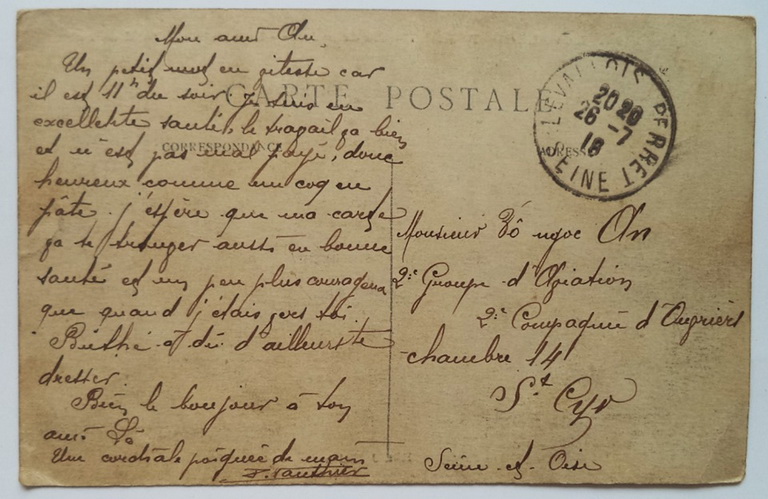 Mon ami An,
Un petit mot en vitesse car
il est 11h du soir, je suis en
excellente santé, le travail va bien
et n'est pas mal payé, donc
heureux comme un coq en
pâte. j'espère que ma carte
va te trouver aussi en bonne
santé et un peu plus courageux
que quand j'étais vers toi.
Buthé a dû d'ailleurs te
dresser.
Bien le bonjour à ton
ami Lê
Une cordiale poignée de main
CARTE POSTALE
CORRESPONDANCE
ADRESSE
LEVALLOIS PERRET
20 20
26 - 7
18
SEINE
Monsieur Võ ngoc An
2e Groupe d'Aviation
2e Compagnie d'Ouvriers
chambre 14
St Cyr
Seine et Oise